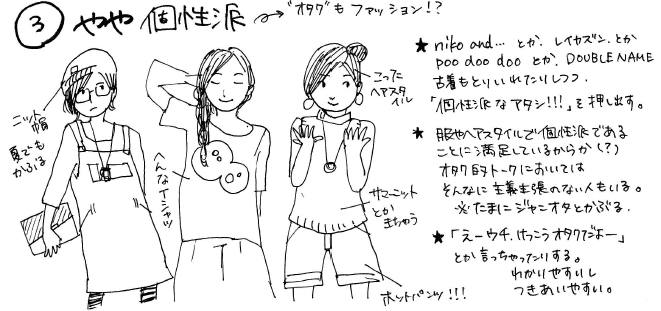 ③ やや 個性派 → "オタク"も ファッション!?
ニット
帽
夏でも
かぶる
へんなTシャツ
こった
ヘアスタ
イル
サマーニット
とか
きちゃう
ホットパンツ!!!
★ niko and... とか、レイカズン、とか
poo doo doo とか、DOUBLE NAME
古着もとりいれたりしつつ、
「個性派なアタシ!!!」を押し出す。
★ 服やヘアスタイルで個性派である
ことに満足しているからか(?)
オタク的トークにおいては
そんなに主義主張のない人もいる。
※たまにジャニオタとかぶる。
★「えーウチ、けっこうオタクだよー」
とか言っちゃったりする。
わかりやすいし
つきあいやすい。